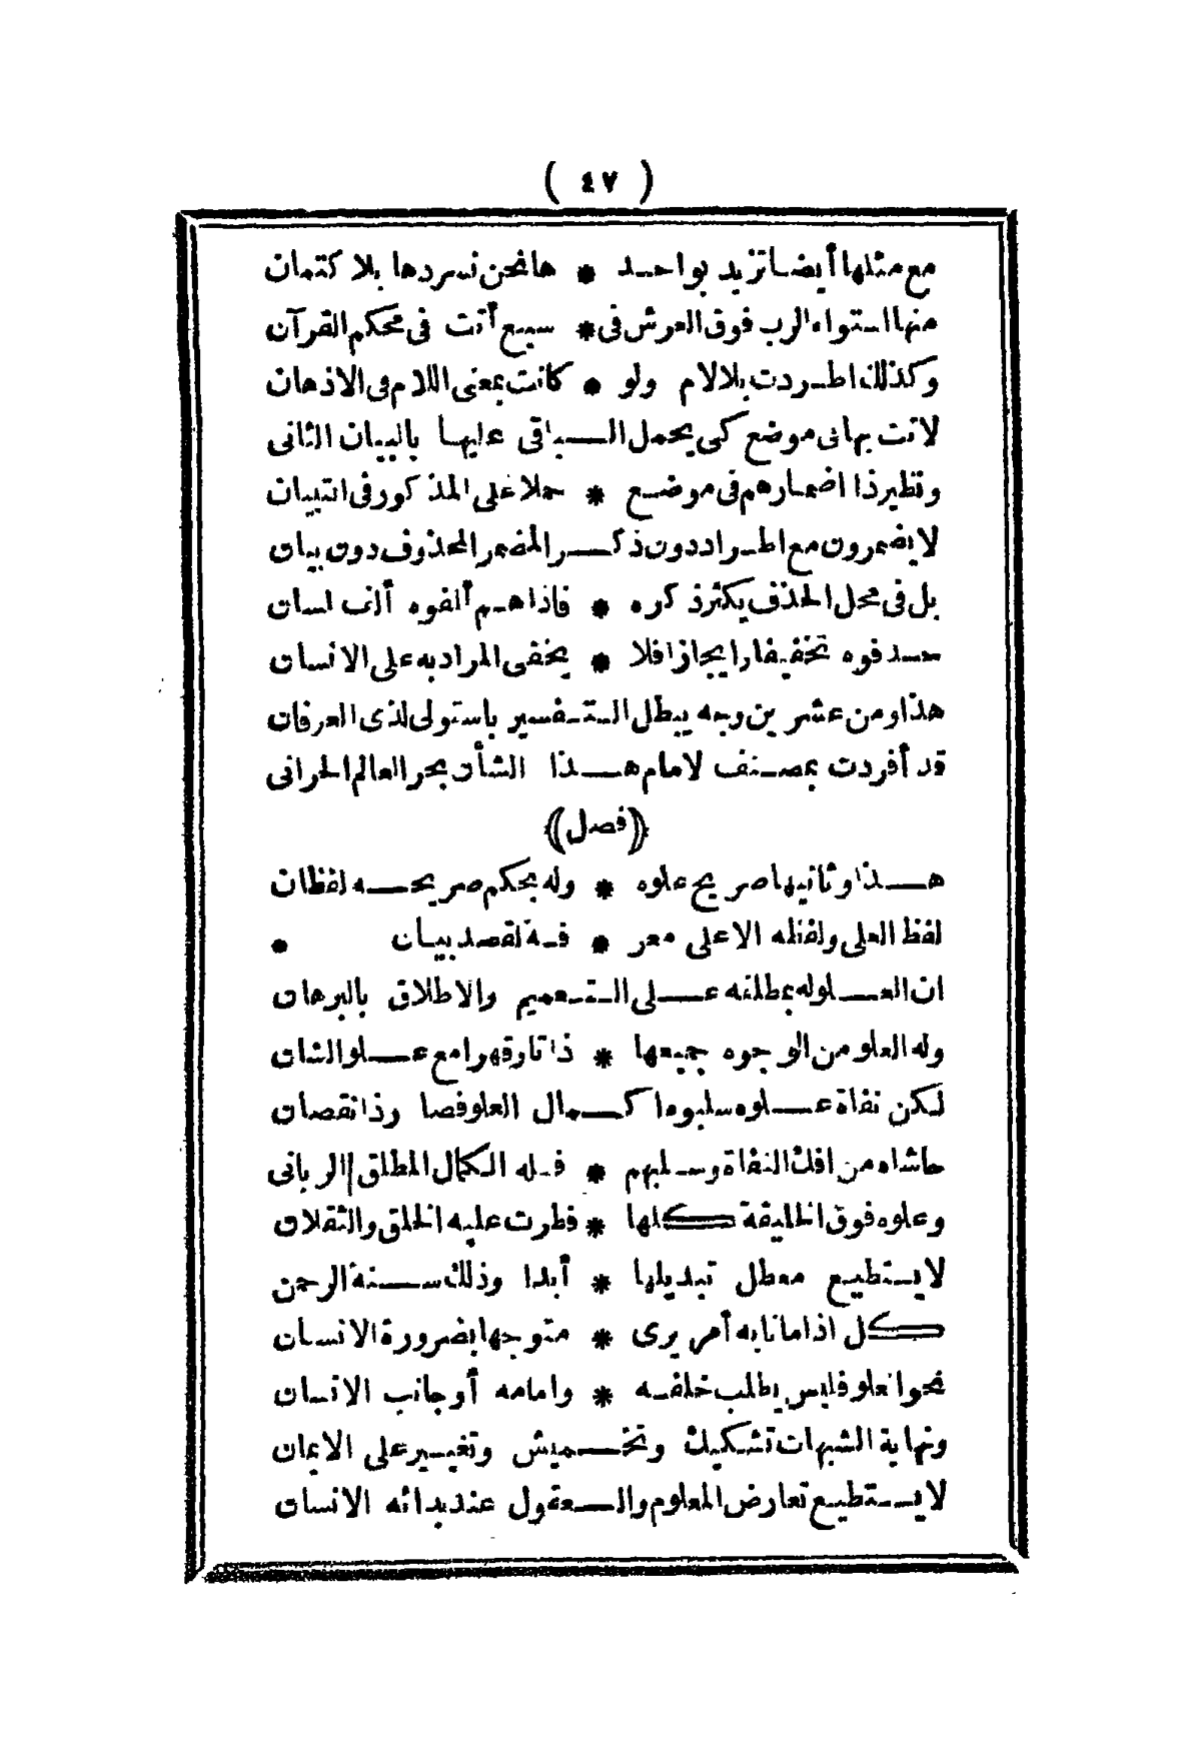 ( ٤٧ )
مع مثلها أيضا تزيد بواحد * ها نحن نسردها بلا كتمان
منها استواء الرب فوق العرش فى * سبع أتت فى محكم القرآن
وكذلك اطردت بلا لام ولو * كانت بمعنى اللام فى الاذهان
لاتت بها فى موضع كى يحمل الـباقى عليها بالبيان الثانى
ونظير ذا اضمارهم فى موضع * حملا على المذكور فى التبيان
لا يضمرون مع اطراد دون ذكر المضمر المحذوف دون بيان
بل فى محل الحذف يكثر ذكره * فاذا هم ألفوه ألف لسان
حذفوه تخفيفا وايجازا فلا * يخفى المراد به على الانسان
هذا ومن عشرين وجه يبطل التفسير باستولى لذى العرفان
قد أفردت بمصنف لامام هذا الشأن بحر العالم الحرانى
﴿فصل﴾
هذا وثانيها صريح علوه * وله بحكم صريحه لفظان
لفظ العلى ولفظه الاعلى معر * فة لقصد بيان *
ان العلو له بمطلقه على التعميم والاطلاق بالبرهان
وله العلو من الوجوه جميعها * ذاتا وقهرا مع علو الشان
لكن نفاة علوه سلبوه اكمال العلو فصار ذا نقصان
حاشاه من افك النفاة وسلبهم * فله الكمال المطلق الربانى
وعلوه فوق الخليقة كلها * فطرت عليه الخلق والثقلان
لا يستطيع معطل تبديلها * أبدا وذلك سنة الرحمن
كل اذا ما نابه أمر يرى * متوجها بضرورة الانسان
نحو العلو فليس يطلب خلفه * وامامه أو جانب الانسان
ونهاية الشبهات تشكيك وتخميش وتغيير على الايمان
لا يستطيع تعارض المعلوم والمعقول عند بدائه الانسان